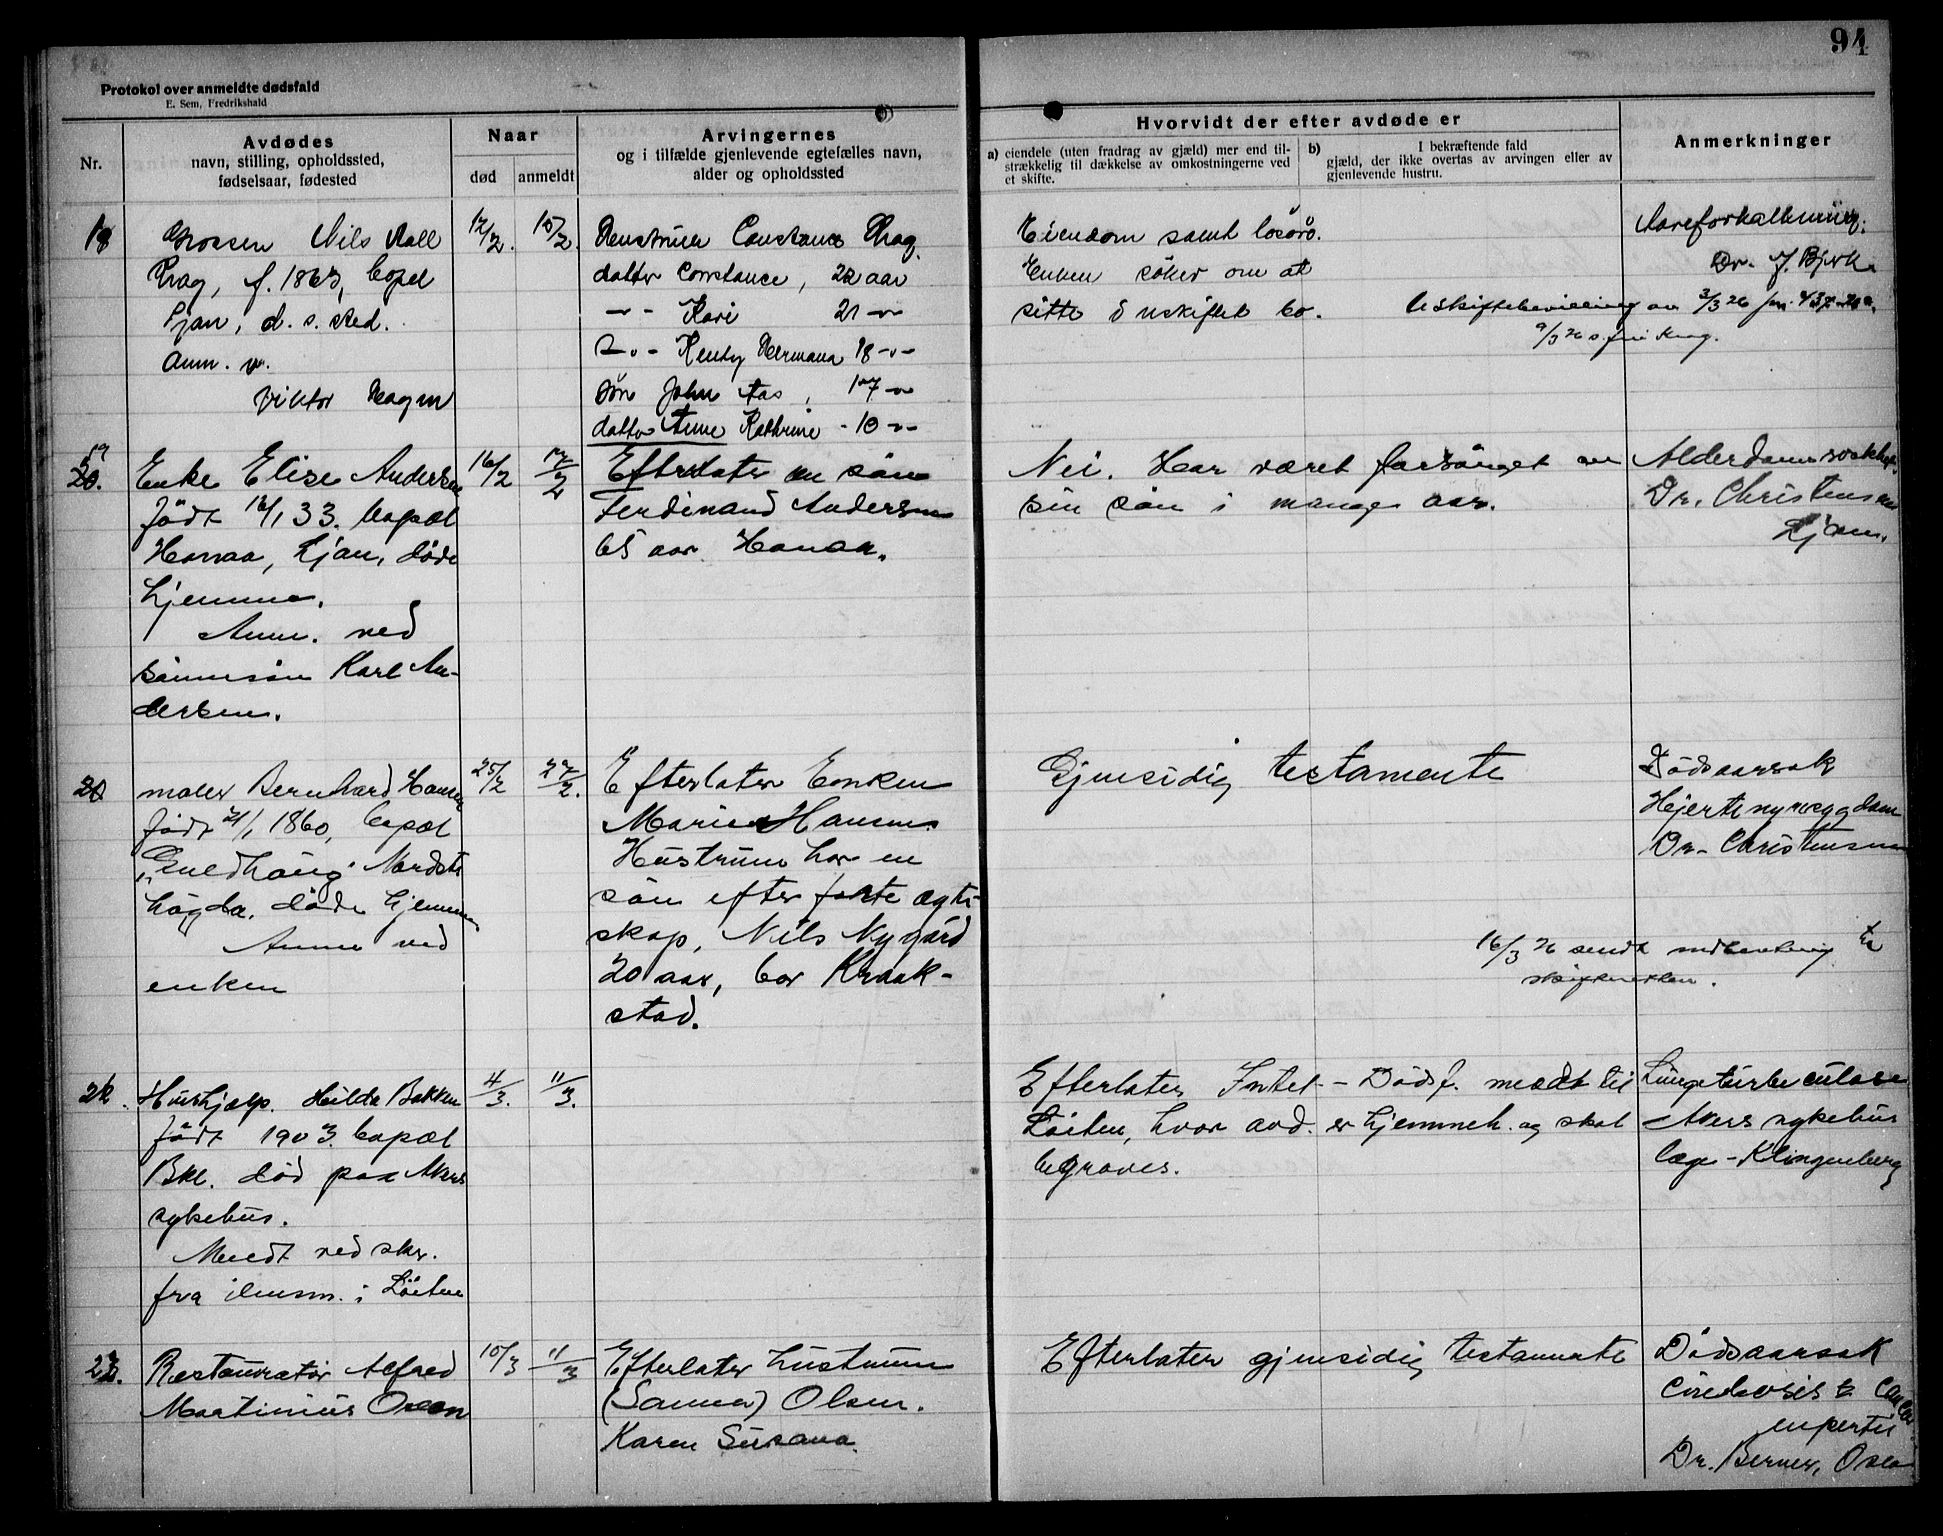 94
Protokol over anmeldte dødsfald
E. Sem, Fredrikshald
Nr.
Avdødes
navn, stilling, opholdssted,
fødselsaar, fødested
Naar
død
anmeldt
Arvingernes
og i tilfælde gjenlevende egtefælles navn,
alder og opholdssted
Hvorvidt der efter avdøde er
a) eiendele (uten fradrag av gjæld) mer end til-
strækkelig til dækkelse av omkostningerne ved
et skifte.
b) I bekræftende fald
gjæld, der ikke overtas av arvingen eller av
gjenlevende hustru.
Anmerkninger
18
Grosserer Nils Aall
Krag, f. 1863, bopel
Ljan, d. s. sted.
Anm. v.
Viktor
12/2.
15/2.
Hustruen Constance Krag.
datter Constance, 22 aar
-"- Kari 21 -"-
-"- Hermana 18 -"-
Søn John Aas, 17 -"-
datter Anne Kathrine - 10 -"-
Eiendom samt løsøre.
Enken søker om at
sitte i uskiftet bo.
Uskiftebevilling av 3/3 26
9/3 26 s. fru Krag.
Aareforkalkning.
Dr. J. Bjerke
19
20.
Enke Elise Andersen
født 12/1 33. bopæl
Ljan, døde
hjemme.
Anm. ved
sønnesøn Karl An-
dersen.
16/2
17/2
Efterlater en søn
Ferdinand Andersen
65 aar.
Nei. Har været forsørget av
sin søn i mange aar.
Alderdomssvakhet.
Dr. Christensen
Ljan.
20
maler Bernhard Hansen
født 21/1 1860, bopæl
"Guldhaug" Nordst.
høgda. døde hjemme
Anm ved
enken
25/2
27/2.
Efterlater Enken
Marie Hansen.
Hustruen har en
søn efter første ægte-
skap, Nils Nygård
20 aar, bor Kraak-
stad.
Gjensidig testamente
16/3 26 sendt indberetning til
skifteretten.
Dødsaarsak
Hjerte
Dr. Christensen
21.
Hushjælp. Hilda Bakken
født 1903. bopæl
Bkl. død paa Akers
sykehus.
Meldt ved skr.
fra lensm. i Löiten
4/3.
11/3.
Efterlater Intet - Dødsf. meldt til
Löiten, hvor avd. er hjemmeh. og skal
begraves.
Lungetuberculose
Akers sykehus
læge - Klingenberg
22.
Restauratør Alfred
Martinius Olsen
10/3
11/3
Efterlater hustruen
(Sanna) Olsen.
Karen Susana.
Efterlater gjensidig testamente
Dødsaarsak
Dr. Berner, Oslo